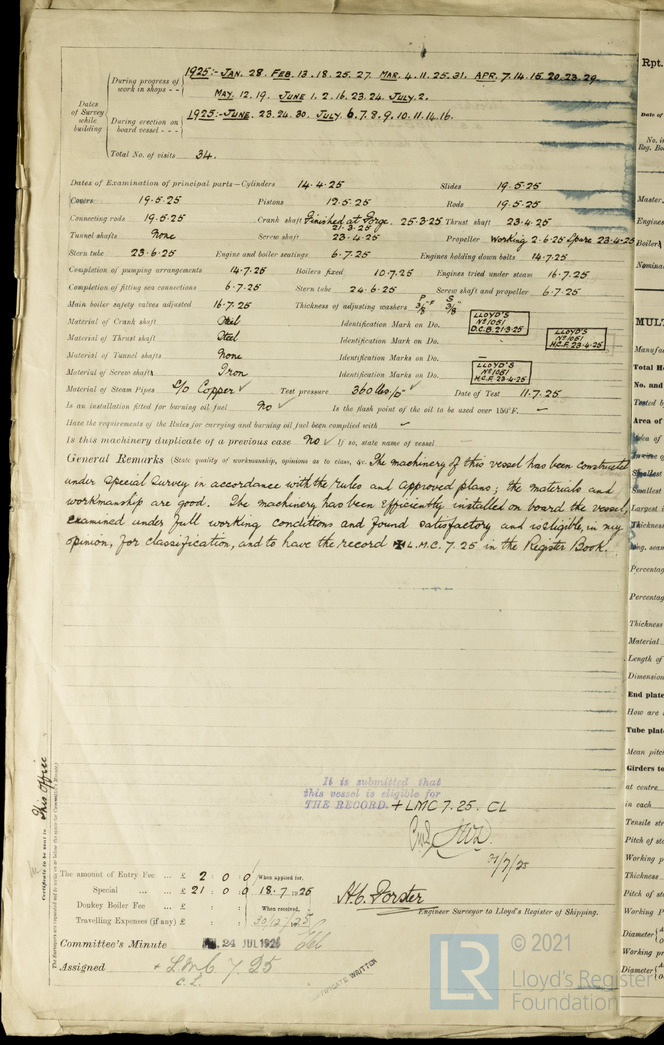 During progress of work in shops - - 1925:- JAN. 28. FEB. 13. 18. 25. 27. MAR. 4. 11. 25. 31. APR. 7. 14. 15. 20. 23. 29.
MAY. 12. 19. JUNE 1. 2. 16. 23. 24. JULY. 2.
Dates of Survey while building
During erection on board vessel - - - 1925:- JUNE. 23. 24. 30. JULY. 6. 7. 8. 9. 10. 11. 14. 16.
Total No. of visits 34.
Dates of Examination of principal parts—Cylinders 14.4.25 Slides 19.5.25
Covers 19.5.25 Pistons 19.5.25 Rods 19.5.25
Connecting rods 19.5.25 Crank shaft Finished at Forge. 21.3.25 25.3.25 Thrust shaft 23.4.25
Tunnel shafts None Screw shaft 23.4.25 Propeller Working 2.6.25 Spare 23.4.25
Stern tube 23.6.25 Engine and boiler seatings 6.7.25 Engines holding down bolts 14.7.25
Completion of pumping arrangements 14.7.25 Boilers fixed 10.7.25 Engines tried under steam 16.7.25
Completion of fitting sea connections 6.7.25 Stern tube 24.6.25 Screw shaft and propeller 6.7.25
Main boiler safety valves adjusted 16.7.25 Thickness of adjusting washers P 3/8 F S 3/8
Material of Crank shaft Steel Identification Mark on Do. LLOYD'S No 1051 D.C.B. 21.3.25
Material of Thrust shaft Steel Identification Mark on Do. LLOYD'S No 1051 H.C.F. 23.4.25
Material of Tunnel shafts None Identification Marks on Do. —
Material of Screw shafts Iron Identification Marks on Do. LLOYD'S No 1051 H.C.F. 23.4.25
Material of Steam Pipes S/D Copper ✓ Test pressure 360 lbs/□" ✓ Date of Test 11.7.25
Is an installation fitted for burning oil fuel No ✓ Is the flash point of the oil to be used over 150°F. —
Have the requirements of the Rules for carrying and burning oil fuel been complied with —
Is this machinery duplicate of a previous case No ✓ If so, state name of vessel
General Remarks (State quality of workmanship, opinions as to class, &c. The machinery of this vessel has been constructed
under special survey in accordance with the rules and approved plans; the materials and
workmanship are good. The machinery has been efficiently installed on board the vessel,
examined under full working conditions and found satisfactory and is eligible, in my
opinion, for classification, and to have the record ✠ L.M.C. 7.25 in the Register Book.
It is submitted that
this vessel is eligible for
THE RECORD. + LMC 7.25. CL
31/7/25
Certificate to be sent to This Office
The amount of Entry Fee ... £ 2 : 0 : 0 When applied for,
Special ... ... £ 21 : 0 : 0 18.7.1925
Donkey Boiler Fee ... £ : : When received,
Travelling Expenses (if any) £ : : 30/12/25
H.C. Forster
Engineer Surveyor to Lloyd's Register of Shipping.
Committee's Minute FRI. 24 JUL 1925
Assigned + L.M.C 7.25
C.L.
CERTIFICATE WRITTEN
LR © 2021
Lloyd's Register
Foundation
Rpt.
Date of
No. in
Reg. Bo
Master
Engines
Boilers
Nomina
MULT
Manufac
Total He
No. and
Tested b
Area of
Area of
In case o
Smallest
Smallest
Largest i
Thickness
long. seam
Percentag
Percentag
Thickness
Material
Length of
Dimension
End plate
How are
Tube plat
Mean pitc
Girders to
at centre
in each
Tensile str
Pitch of st
Working p
Thickness
Pitch of st
Working P
Diameter
Working pr
Diameter